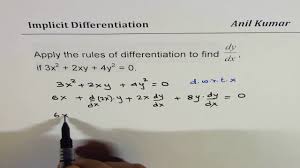 Implicit Differentiation
Anil Kumar
Apply the rules of differentiation to find dy/dx
if 3x² + 2xy + 4y² = 0.
3x² + 2xy + 4y² = 0
d.w.r.t.x
6x + d/dx (2x).y + 2x dy/dx + 8y.dy/dx = 0
6x